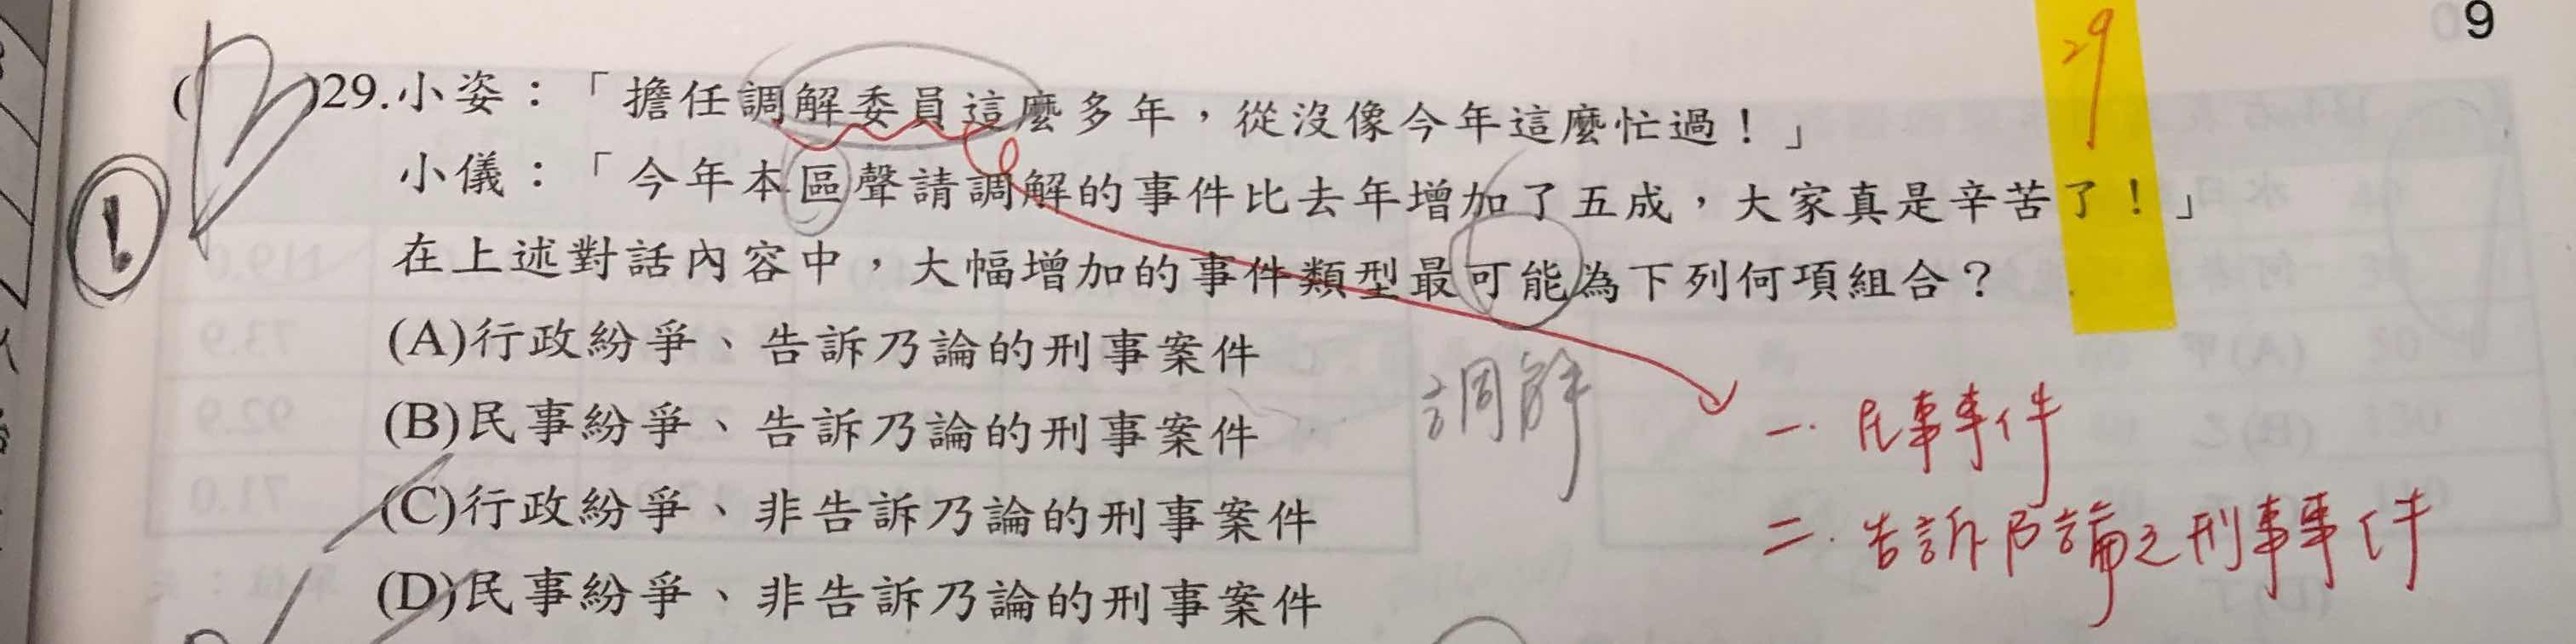 9
29
( B )29.小姿：「擔任調解委員這麼多年，從沒像今年這麼忙過！」
小儀：「今年本區聲請調解的事件比去年增加了五成，大家真是辛苦了！」
在上述對話內容中，大幅增加的事件類型最可能為下列何項組合？
(A)行政紛爭、告訴乃論的刑事案件
(B)民事紛爭、告訴乃論的刑事案件
(C)行政紛爭、非告訴乃論的刑事案件
(D)民事紛爭、非告訴乃論的刑事案件
調解
一. 民事事件
二. 告訴乃論之刑事事件
!